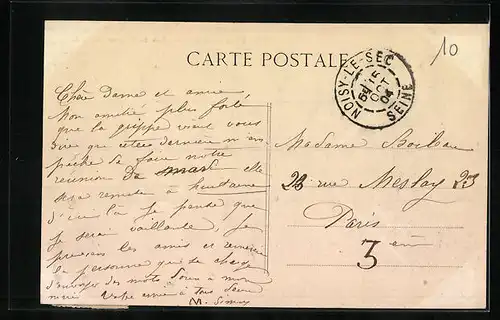 10
CARTE POSTALE
NOISY-LE-SEC
15
OCT
04
SEINE
Chère Dame et amie,
Mon amitié plus forte
que la grippe vient vous
dire que cette dernière m'em
pêche de faire notre
réunion de mardi elle
sera remise à huitaine
d'ici là je pense que
je serai vaillante, je
préviens les amis et remercie
la personne qui se charge
d'envoyer des mots doux à mon
Votre amie à tous
M.
Madame Boileau
23 rue Meslay 23
Paris
3 em